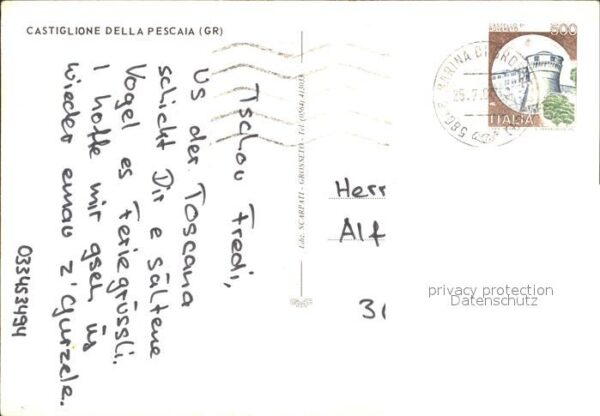 CASTIGLIONE DELLA PESCAIA (GR)
Tschou Fredi,
Us der Toscana
schickt Dir e sältene
Vogel es Feriegrüssli.
I hoffe mir gseh üs
wieder emau z'Gurzele.
0334S3494
Edit. SCARPATI - GROSSETO - Tel. (0564) 413033
500
ITALIA
MARINA DI GRO
Herr
Alf
31
privacy protection
Datenschutz